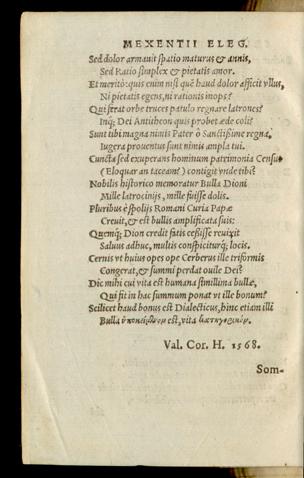 MEXENTII ELEG.
Sed dolor armauit spatio maturus & annis,
Sed Ratio simplex & pietatis amor.
Et meritò: quis enim nisi quē haud dolor afficit vllus,
Ni pietatis egens, ni rationis inops?
Qui strat orbe truces patulo regnare latrones?
Inq; Dei Antitheon quis probet æde coli?
Sunt tibi magna nimis Pater ô Sanctissime regna,
Iugera prouentus sunt nimis ampla tui.
Cuncta sed exuperans hominum patrimonia Census
(Eloquar an taceam?) contigit vnde tibi?
Nobilis historico memoratur Bulla Dioni
Mille latrocinijs, mille fuisse dolis.
Pluribus è spolijs Romani Curia Papæ
Creuit, & est bullis amplificata suis:
Quemq; Dion credit satis cessisse reuixit
Saluus adhuc, multis conspiciturq; locis.
Cernis vt huius opes ope Cerberus ille triformis
Congerat, & summi perdat ouile Dei?
Dic mihi cui vita est humana simillima bullæ,
Qui fit in hac summum ponat vt ille bonum?
Scilicet haud bonus est Dialecticus, hinc etiam illi
Bulla est, vita
Val. Cor. H. 1568.
Som-